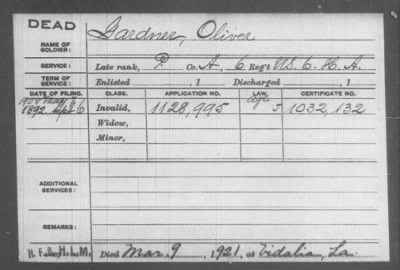 DEAD
Gardner, Oliver
NAME OF SOLDIER:
SERVICE: Late rank, P. Co. A, 6 Reg't U.S.C.H.A.
TERM OF SERVICE: Enlisted , 1 Discharged , 1
DATE OF FILING. CLASS. APPLICATION NO. LAW. CERTIFICATE NO.
1908 May 6
1892 Sept 6 Invalid, 1128,995 1032,132
Widow,
Minor,
ADDITIONAL SERVICES:
REMARKS:
Died Mar. 9, 1921, at Vidalia, La.